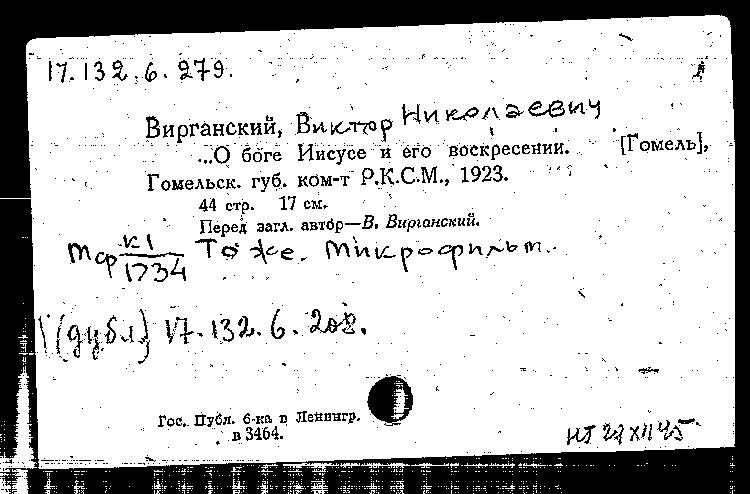 17.132.6.279.
Вирганский, Виктор Николаевич
...О боге Иисусе и его воскресении. [Гомель],
Гомельск. губ. ком-т Р.К.С.М., 1923.
44 стр. 17 см.
Перед загл. автор—В. Вирганский.
Мф К1/1734 То же. Микрофильм.
(дубл) 17.132.6.208.
Гос. Публ. б-ка в Ленингр.
в 3464.